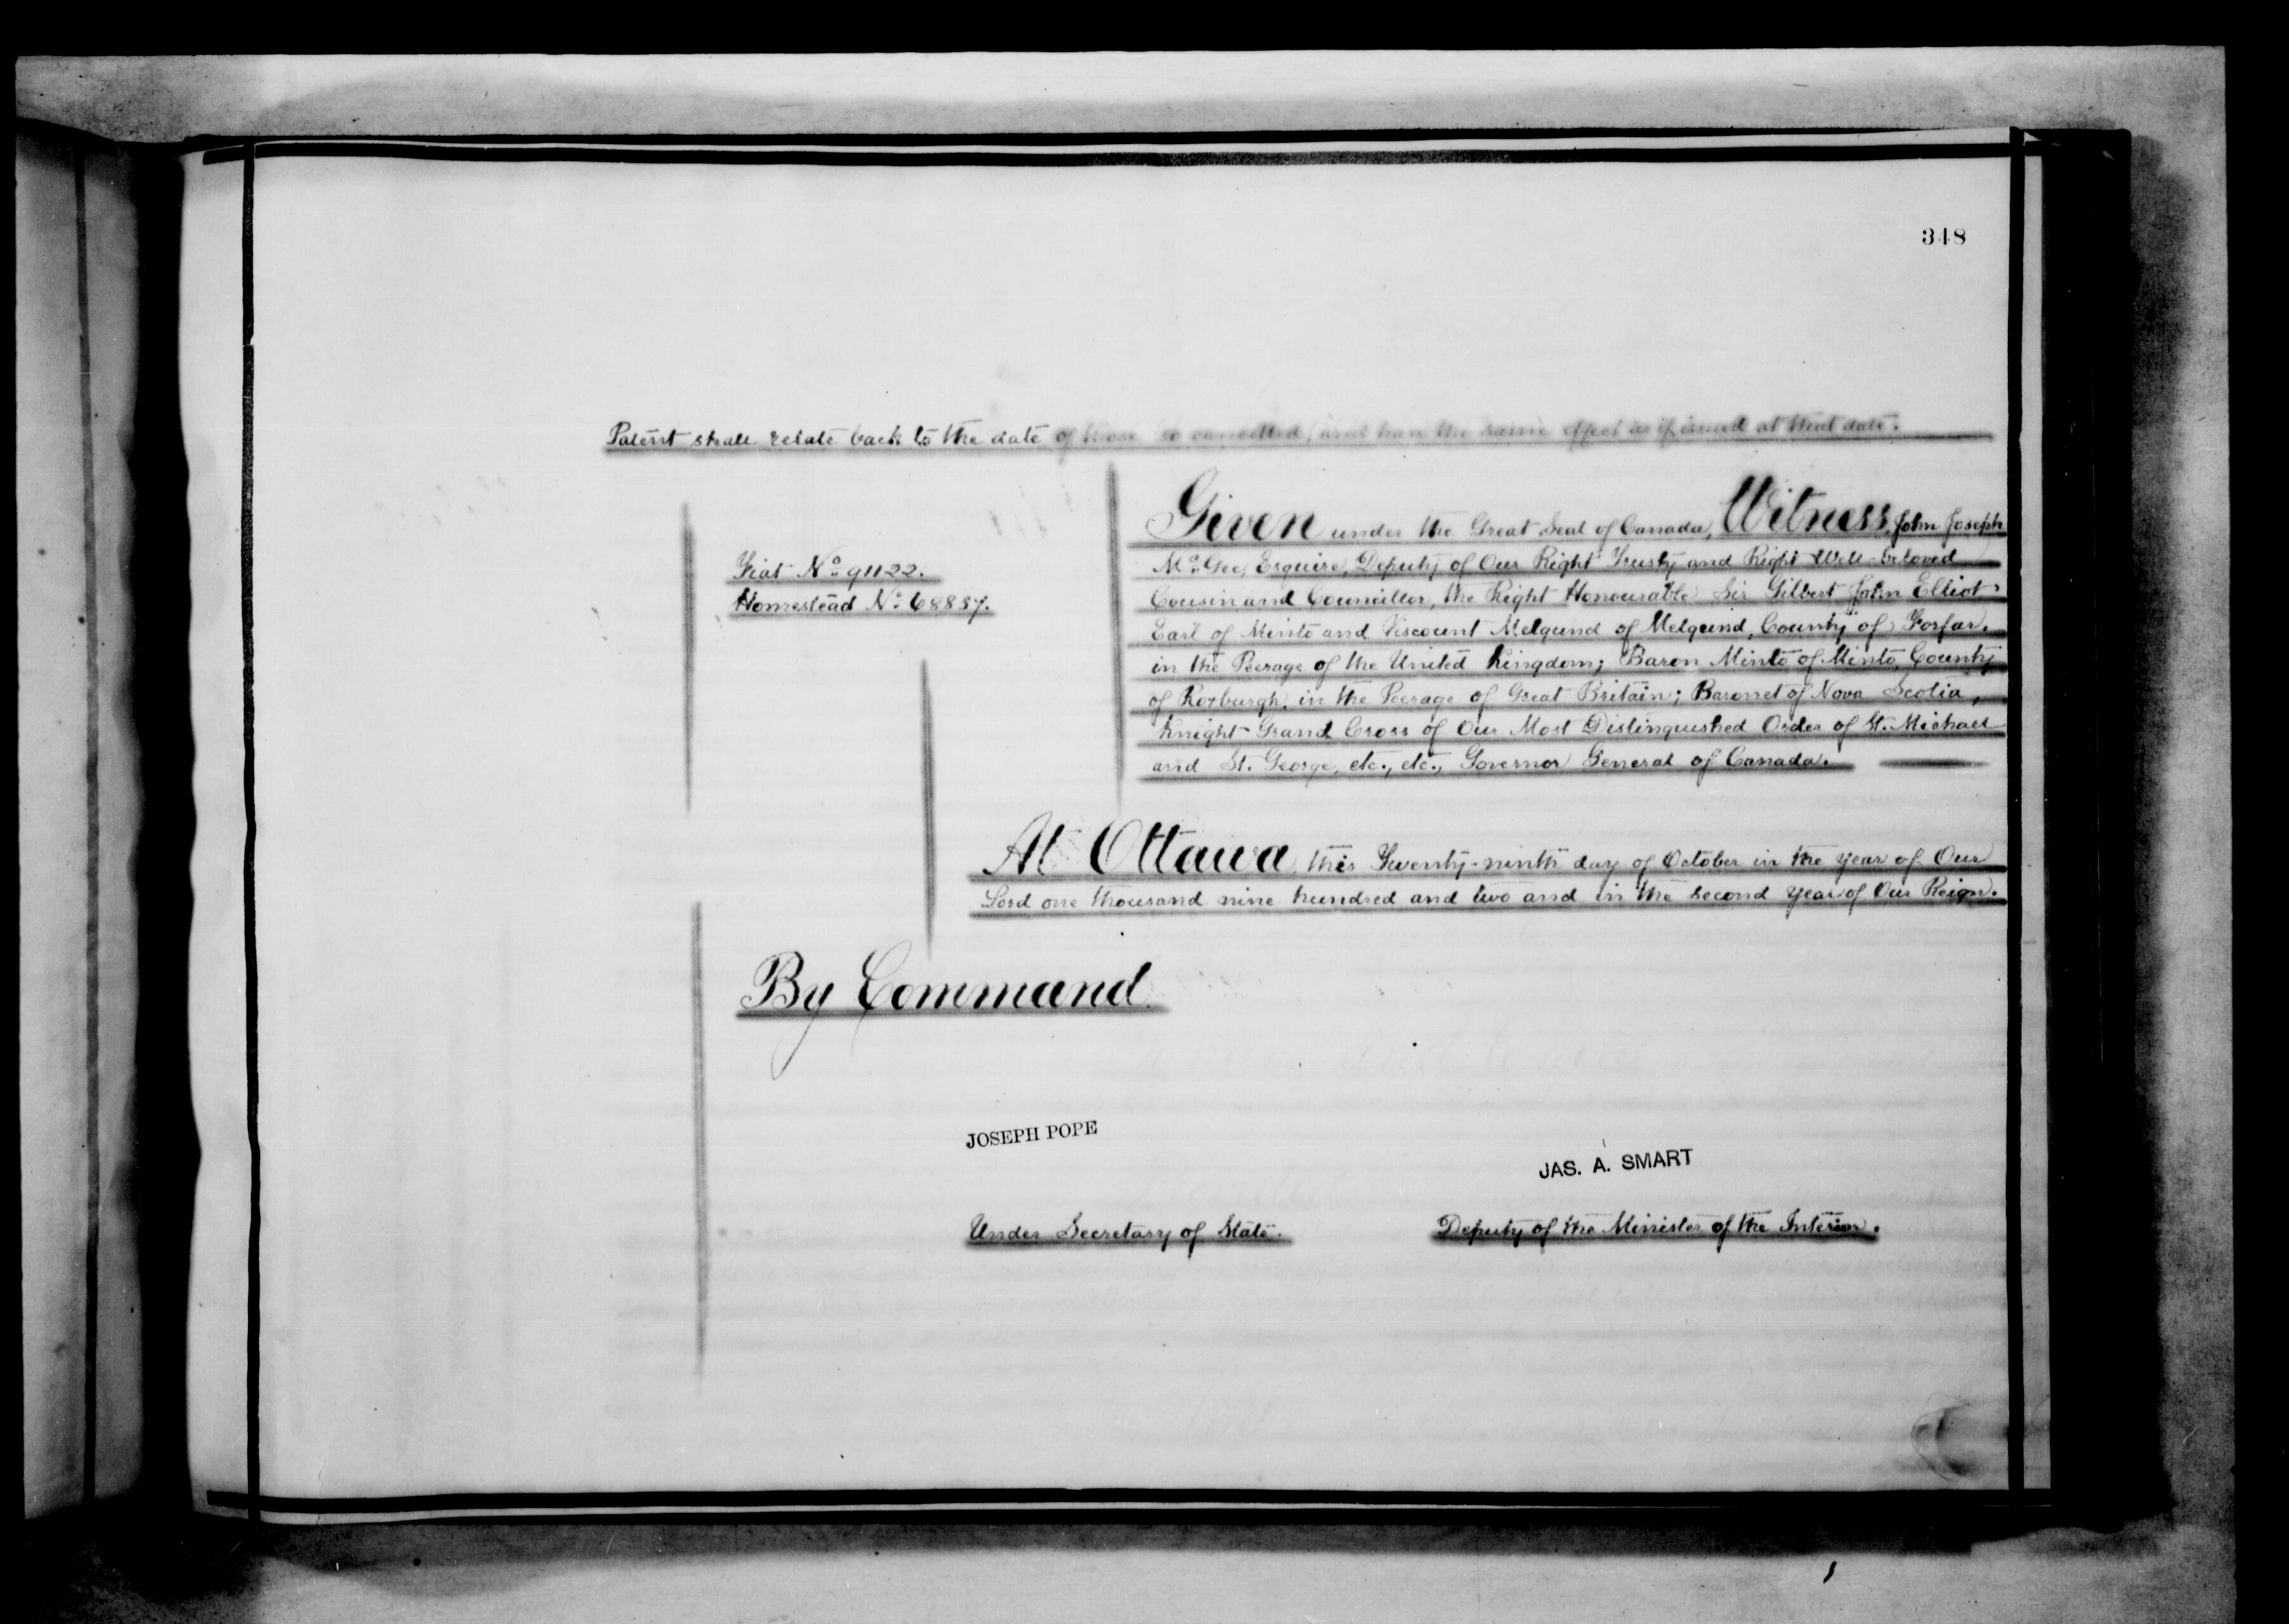 348
Patent shall relate back to the date of those so cancelled, and have the same effect as if issued at that date.
Given under the Great Seal of Canada, Witness, John Joseph
McGee, Esquire, Deputy of Our Right Trusty and Right Well-beloved
Cousin and Councillor, the Right Honourable Sir Gilbert John Elliot
Earl of Minto and Viscount Melgund of Melgund, County of Forfar,
in the Peerage of the United Kingdom; Baron Minto of Minto, County
of Roxburgh, in the Peerage of Great Britain; Baronet of Nova Scotia,
Knight Grand Cross of Our Most Distinguished Order of St. Michael
and St. George, etc., etc., Governor General of Canada.
Fiat No. 91122.
Homestead No. 68887.
At Ottawa, this Twenty-ninth day of October in the year of Our
Lord one thousand nine hundred and two and in the second year of Our Reign.
By Command
JOSEPH POPE
Under Secretary of State.
JAS. A. SMART
Deputy of the Minister of the Interior.